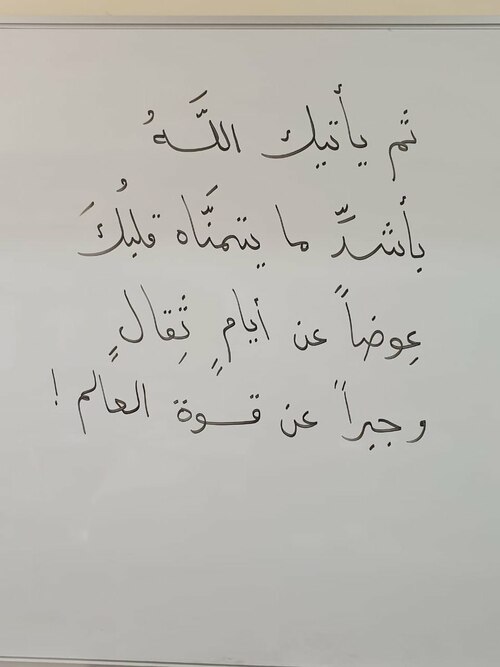 ثم يأتيك اللَّهُ
بأشدِّ ما يتمنَّاه قلبُكَ
عِوضاً عن أيامٍ ثِقالٍ
وجبراً عن قسوة العالم !